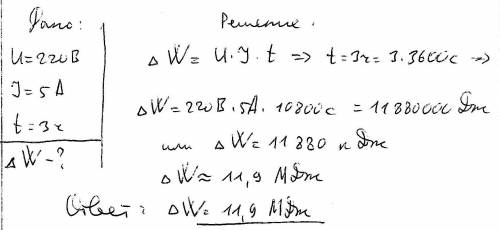 Дано:
U=220В
J=5А
t=3ч
ΔW-?
Решение.
ΔW= U·J·t => t=3ч=3·3600с =>
ΔW=220В·5А·10800с = 11880000 Дж
или ΔW=11880 кДж
ΔW≈11,9 МДж
Ответ: ΔW=11,9 МДж